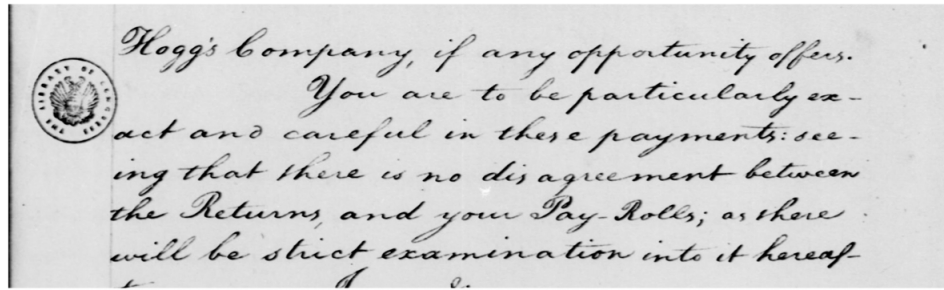 Hogg's Company, if any opportunity offers.
You are to be particularly ex-
act and careful in these payments: see-
ing that there is no disagreement between
the Returns, and your Pay-Rolls; as there
will be strict examination into it hereaf-
THE LIBRARY OF CONGRESS